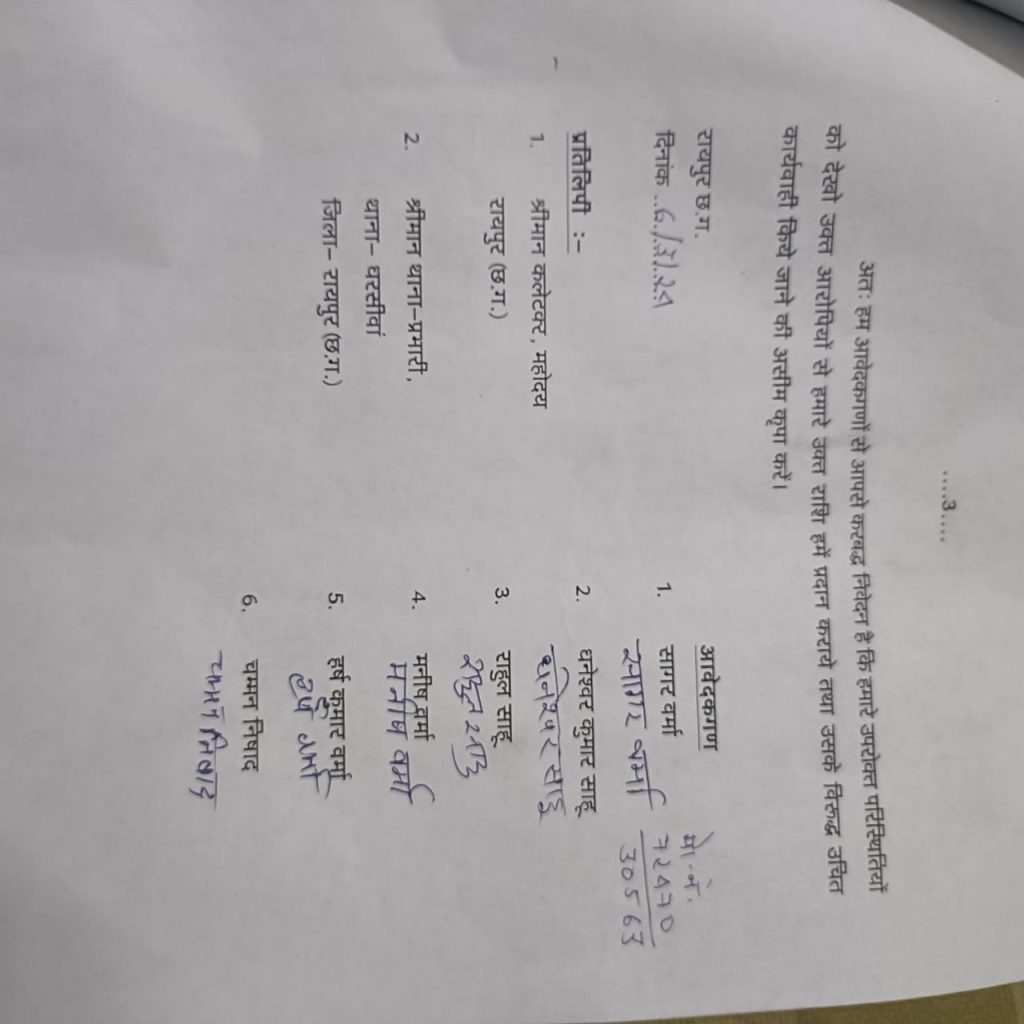 ....3....
अतः हम आवेदकगणों से आपसे करबद्ध निवेदन है कि हमारे उपरोक्त परिस्थितियों
को देखो उक्त आरोपियों से हमारे उक्त राशि हमें प्रदान कराये तथा उसके विरूद्ध उचित
कार्यवाही किये जाने की असीम कृपा करें।
रायपुर छ.ग.
दिनांक ..6../3/.24
आवेदकगण
1. सागर वर्मा
सागर वर्मा
मो. नं.
72470
30563
2. धनेश्वर कुमार साहू
धनेश्वर साहु
3. राहुल साहू
राहुल साहु
4. मनीष वर्मा
मनीष वर्मा
5. हर्ष कुमार वर्मा
हर्ष वर्मा
6. चमन निषाद
चमन निषाद
प्रतिलिपी :-
1. श्रीमान कलेटकर, महोदय
रायपुर (छ.ग.)
2. श्रीमान थाना-प्रभारी,
थाना- धरसीवां
जिला- रायपुर (छ.ग.)